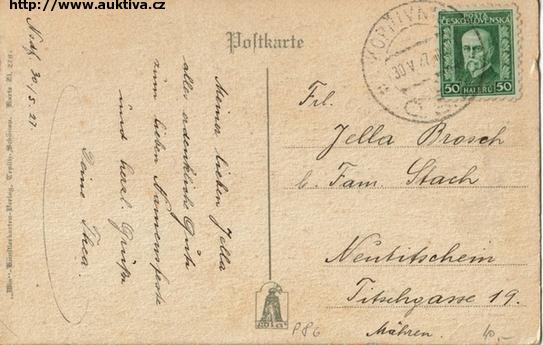 http://www.auktiva.cz
Postkarte
Ndf. 30/5. 27.
Meiner lieben Jella
alles erdenkliche Gute
zum lieben Namensfeste
und herzl. Grüße
Deine Thea.
KOPŘIVN
30.V.27
POŠTA
ČESKOSLOVENSKA
50 HALÉŘŮ 50
Frl.
Jella Brosch
b. Fam. Stach
Neutitschein
Titschgasse 19.
Mähren.
40,-
P86
Künstlerkarten-Verlag, Teplitz-Schönau. Karte